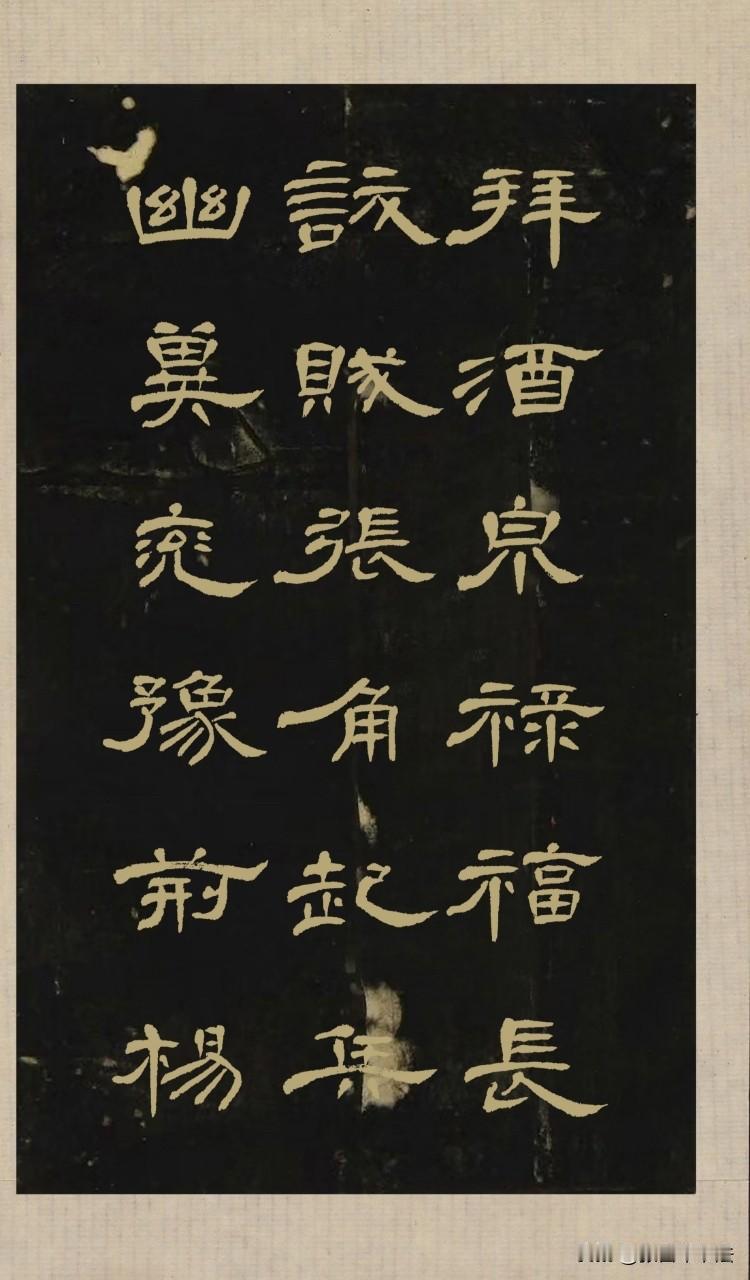 拜酒泉祿福長
訞賊張角起兵
幽冀兖豫荊楊